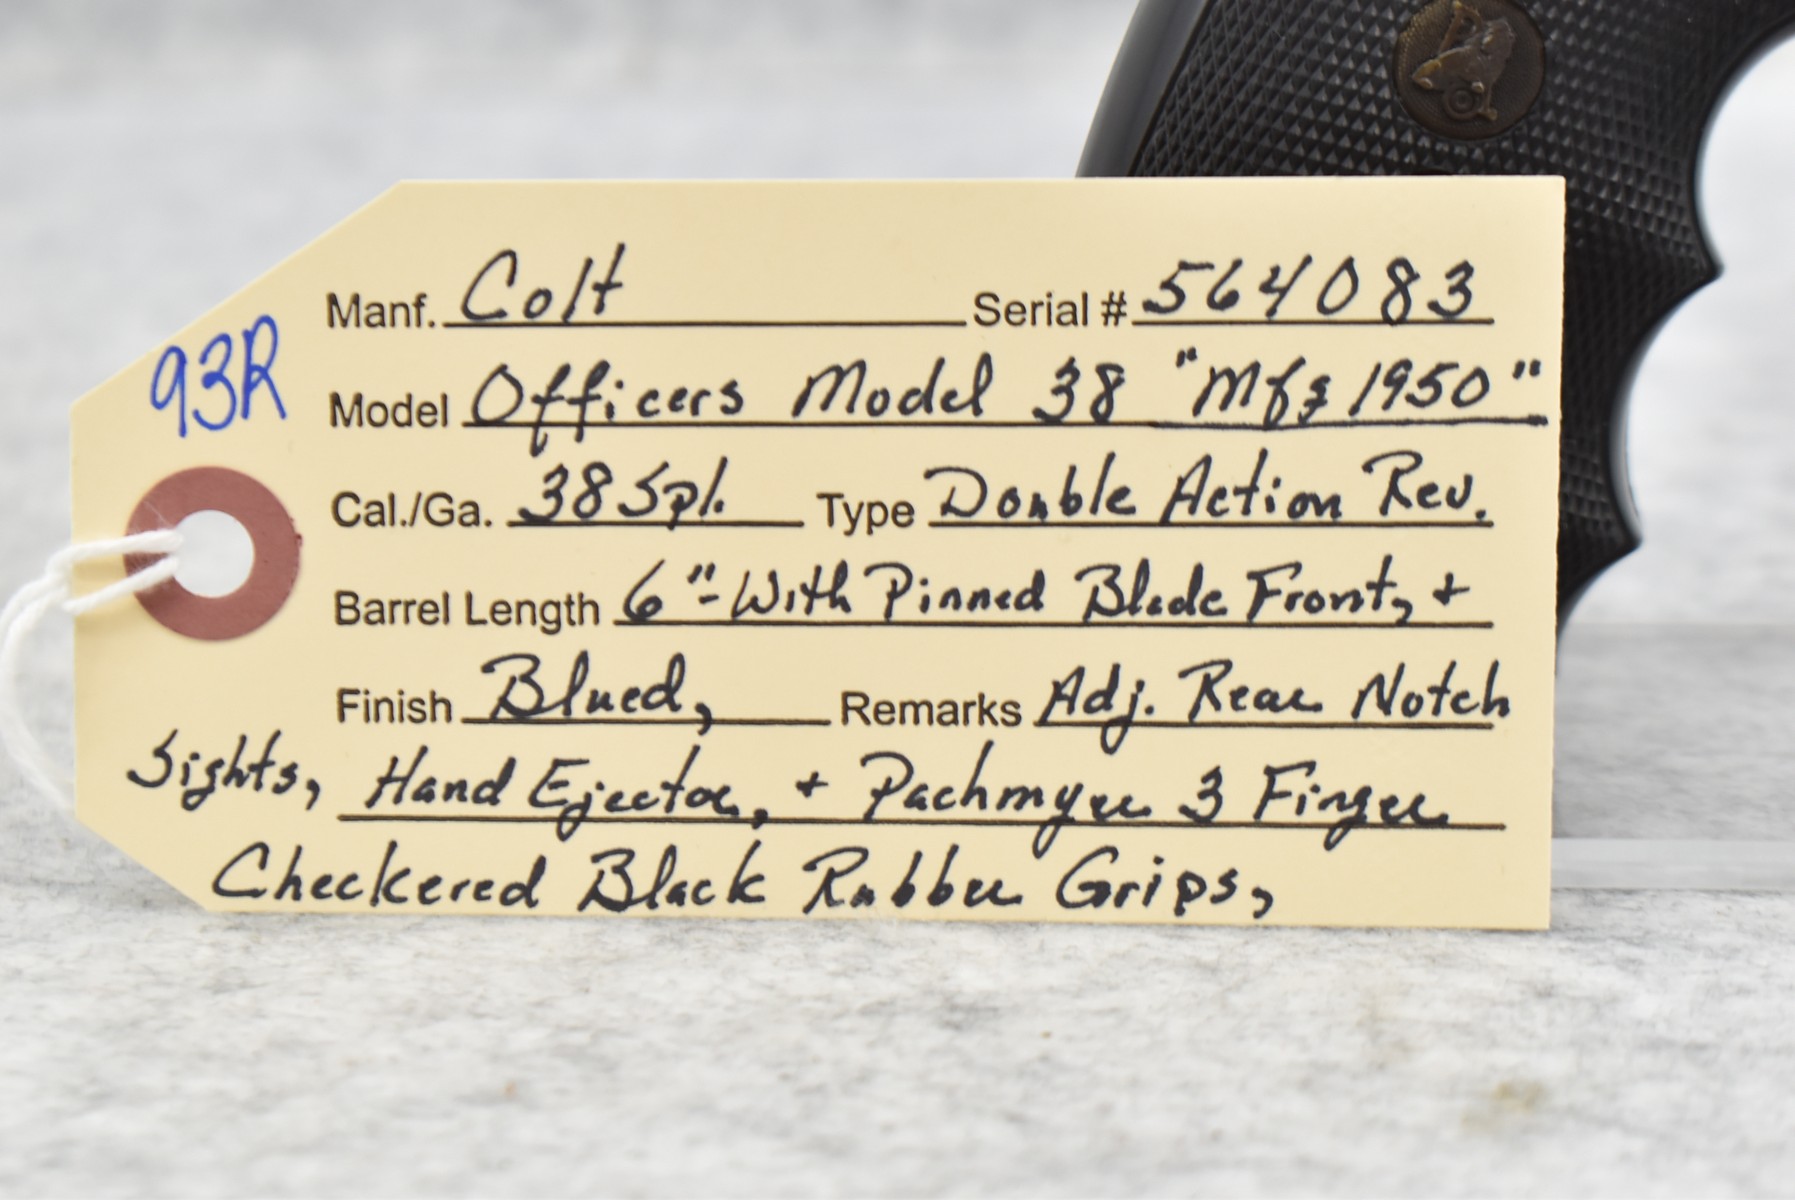 Manf. Colt Serial # 564083
93R
Model Officers Model 38 "Mfg 1950"
Cal./Ga. 38 Spl. Type Double Action Rev.
Barrel Length 6"-With Pinned Blade Front, +
Finish Blued, Remarks Adj. Rear Notch
Sights, Hand Ejector, + Pachmyer 3 Finger
Checkered Black Rubber Grips,